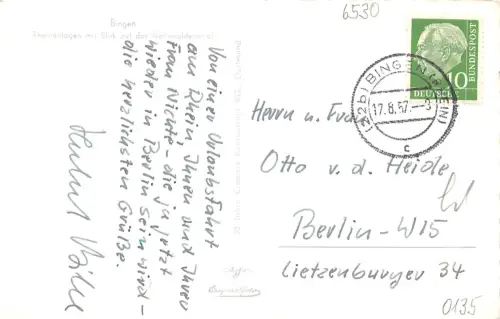 Bingen
Rheinanlagen mit Blick auf das Nationaldenkmal
Von einer Urlaubsfahrt
am Rhein Ihnen und Ihrer
Frau Nichte - die ja jetzt
wieder in Berlin sein wird -
die herzlichsten Grüße.
6530
10
DEUTSCHE
BUNDESPOST
(22b) BINGEN (RHEIN)
17.8.57
c
Herrn u. Frau
Otto v. d. Heide
Berlin-W15
Lietzenburger 34
0135